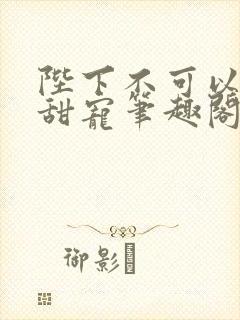 陛下不可以
甜宠笔趣阁
御影